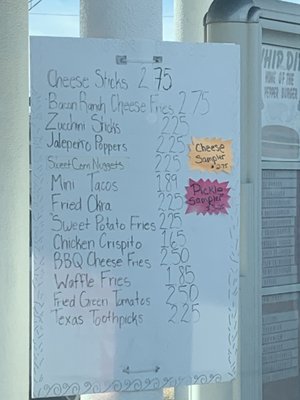 Cheese Sticks 2.75
Bacon Ranch Cheese Fries 2.75
Zucchini Sticks 2.25
Jalepeño Poppers 2.25
Sweet Corn Nuggets 2.25
Mini Tacos 1.89
Fried Okra 2.25
Sweet Potato Fries 2.25
Chicken Crispito 1.65
BBQ Cheese Fries 2.50
Waffle Fries 1.85
Fried Green Tomatos 2.50
Texas Toothpicks 2.25
Cheese
Sampler
Pickle
Sampler
WHIP DI
HOME OF THE
PEPPER BURGER